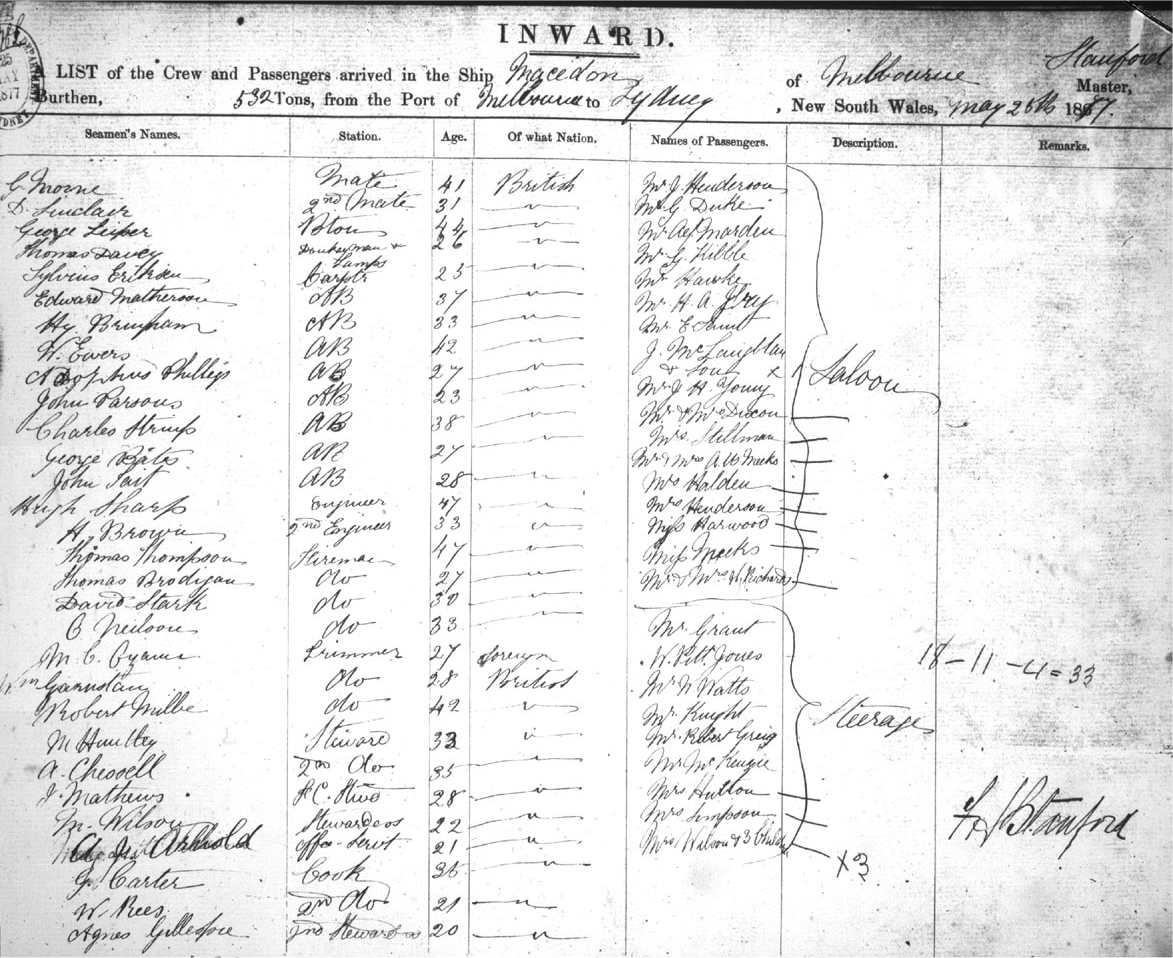 INWARD.
A LIST of the Crew and Passengers arrived in the Ship Macedon of Melbourne Stanford Master,
Burthen, 532 Tons, from the Port of Melbourne to Sydney, New South Wales, May 25th 1877.
Seamen's Names. Station. Age. Of what Nation. Names of Passengers. Description. Remarks.
Mate 41 British Mr J. Henderson
D. Sinclair 2nd Mate 31 " Mr G Duke
George Leiper 44 " Marden
Thomas Davey Donkeyman & Lamps 26 " Mr G. Kibble
Sylvius Eriksen Carptr 25 " Mr Hawke
Edward Matherson AB 37 " Mr H. A.
Hy Bringham AB 33 " Mr E
W. Ewers AB 42 " J. McLaughlan
Adolphus Phillips AB 27 " & Son x Saloon
John Parsons AB 23 " Mr J H Young
Charles AB 38 " Mr & Mrs Dixon
George Bates AB 27 " Mrs Stillman
John AB 28 " Mr & Mrs Meeks
Mrs Halden
Hugh Sharp Engineer 47 " Mrs Henderson
H. Brown 2nd Engineer 33 " Miss Harwood
Thomas Thompson Fireman 47 " Miss Meeks
Thomas Brodigan do 27 " Mr & Mrs Richards
David Stark do 30 "
B Neilson do 33 " Mr Grant
M. C. Trimmer 27 foreign W. Pitt Jones 18-11-4=33
Wm do 28 British Mr W Watts
Robert Milne do 42 " Mr Knight Steerage
M Huntley Steward 33 " Mr Robert Greig
A. Chessell 2nd do 35 " Mr McKenzie
J. Mathews 28 " Mrs Hutton
M. Wilson Stewardess 22 " Mrs Simpson Stanford
Arnold Servt 21 " Mrs Wilson & 3 Children x3
G. Carter Cook 35 "
W. Rees 2nd do 21 "
Agnes Gillespie 2nd Stewardess 20 "